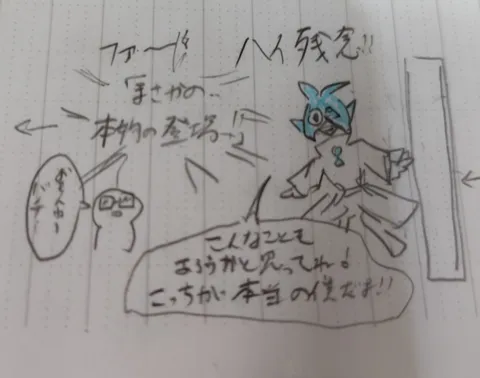 ハイ残念!!
ファー!!
まさかの..
本物の登場..!!
こんなことも
あろうかと思ってね!
こっちが本当の僕だよ!!